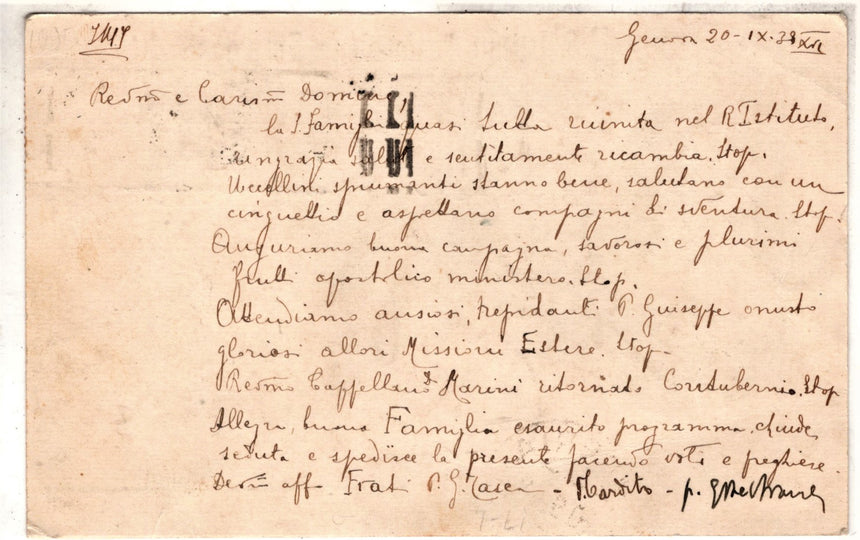 Genova 20-IX-38 XVI
Redmo e Carissm Domenico,
la S. Famiglia quasi tutta riunita nel R Istituto,
ringrazia saluti e sentitamente ricambia. Stop.
Uccellini spiumanti stanno bene, salutano con un
cinguettio e aspettano compagni di sventura. Stop.
Auguriamo buona campagna, savorosi e plurimi
frutti apostolico ministero. Stop.
Attendiamo ansiosi, trepidanti P. Giuseppe onusto
gloriosi allori Missioni Estere. Stop.
Redmo Cappellano Marini ritornato Contubernio. Stop
Allegra, buona Famiglia esaurito programma, chiude
seduta e spedisce la presente facendo voti e preghiere.
Devm aff Frati P. G. - P. Tardito - p.